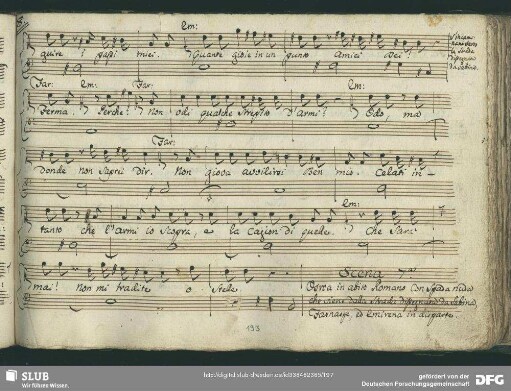 Em:
guire i passi miei. Quante gioie in un punto Amici Dei!
Far: Em: Far: Em:
Ferma. Perche? Non odi qualche strepito d'Armi? Odo, ma
Far:
donde non saprei dir. Non giova avvilirsi Ben mio. Celati in-
Em:
tanto che l'Armi io scopra, e la cagion di quelle. Che Sarà
mai! Non mi tradite o Stele.
Scena 7.ma
Osroa in abito Romano con spada nuda
che viene dalla strada disegnata da Sabina,
Farnaspe, ed Emirena in disparte.
193
SLUB
Wir führen Wissen.
gefördert von der
Deutschen Forschungsgemeinschaft
DFG